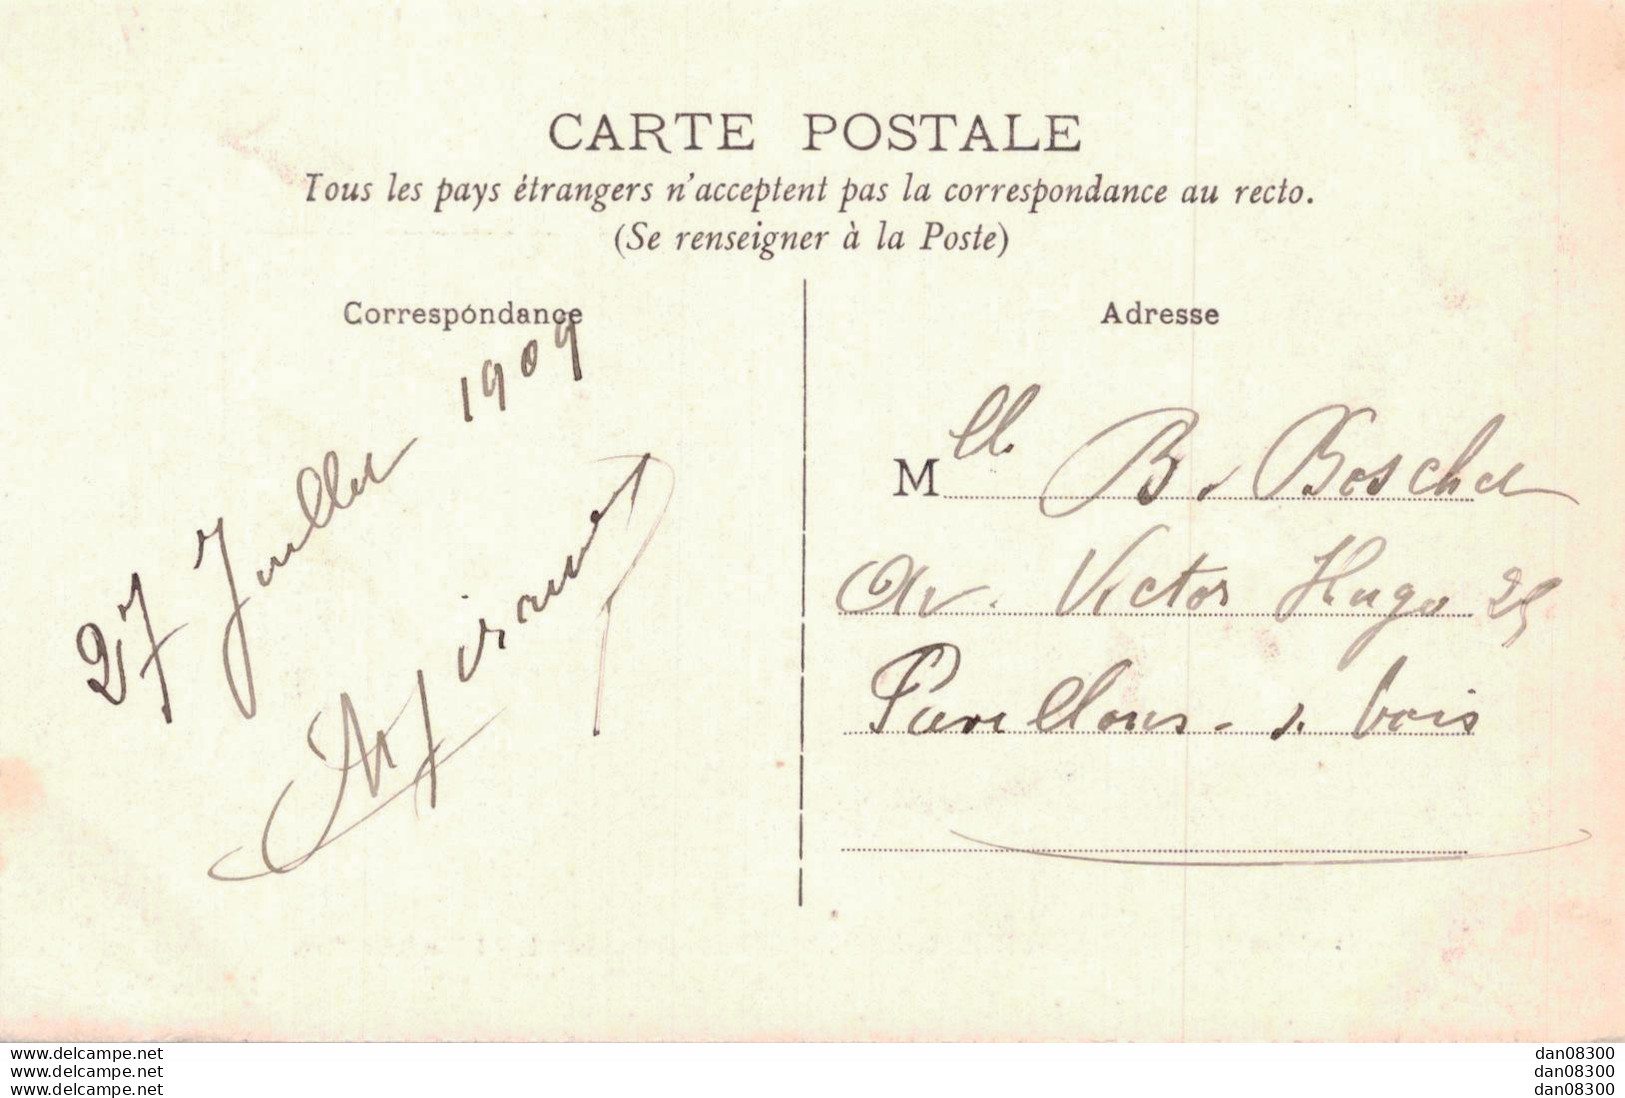 CARTE POSTALE
Tous les pays étrangers n'acceptent pas la correspondance au recto.
(Se renseigner à la Poste)
Correspondance
27 Juillet 1909
Adresse
Mlle. B. Boschet
Av. Victor Hugo 25
Pavillons-s. bois
www.delcampe.net
www.delcampe.net
www.delcampe.net
dan08300
dan08300
dan08300